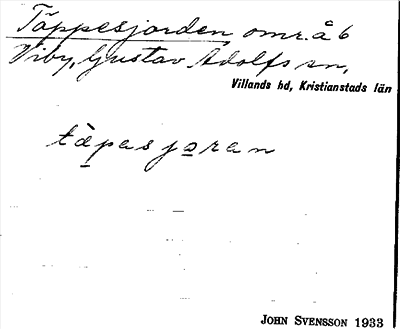 Täppesjorden omr. å 6
Viby, Gustav Adolfs sn,
Villands hd, Kristianstads län
tàpasjɔran
JOHN SVENSSON 1933